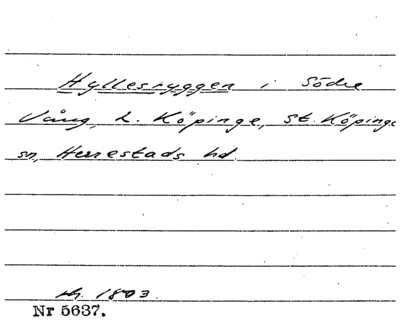 Hyllesryggen i Södre
Vång, L. Köpinge, St. Köpinge
sn, Herrestads hd.
1803.
Nr 5637.